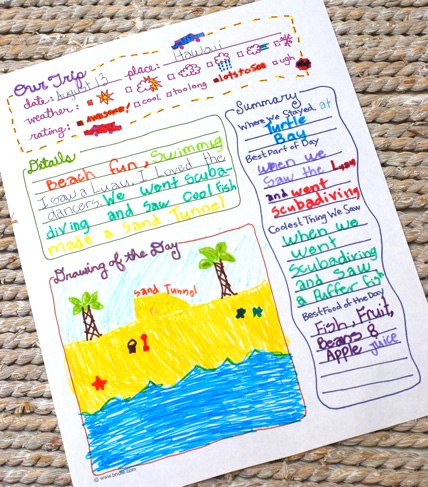 Our Trip
date: August 13 place: Hawaii
weather:
rating: awesome! cool too long lots to see ugh
Details
Beach fun, Swimming
I saw a Luau, I Loved the
dancers. We went Scuba-
diving and Saw Cool Fish
made a Sand Tunnel
Drawing of the Day
Sand Tunnel
Summary
Where We Stayed at
Turtle
Bay
Best Part of Day
when we
Saw the Luau
and went
scubadiving
Coolest Thing We Saw
When we
went
Scubadiving
and Saw
a Puffer Fish
Best Food of the Day
Fish, Fruit,
Beans &
Apple juice